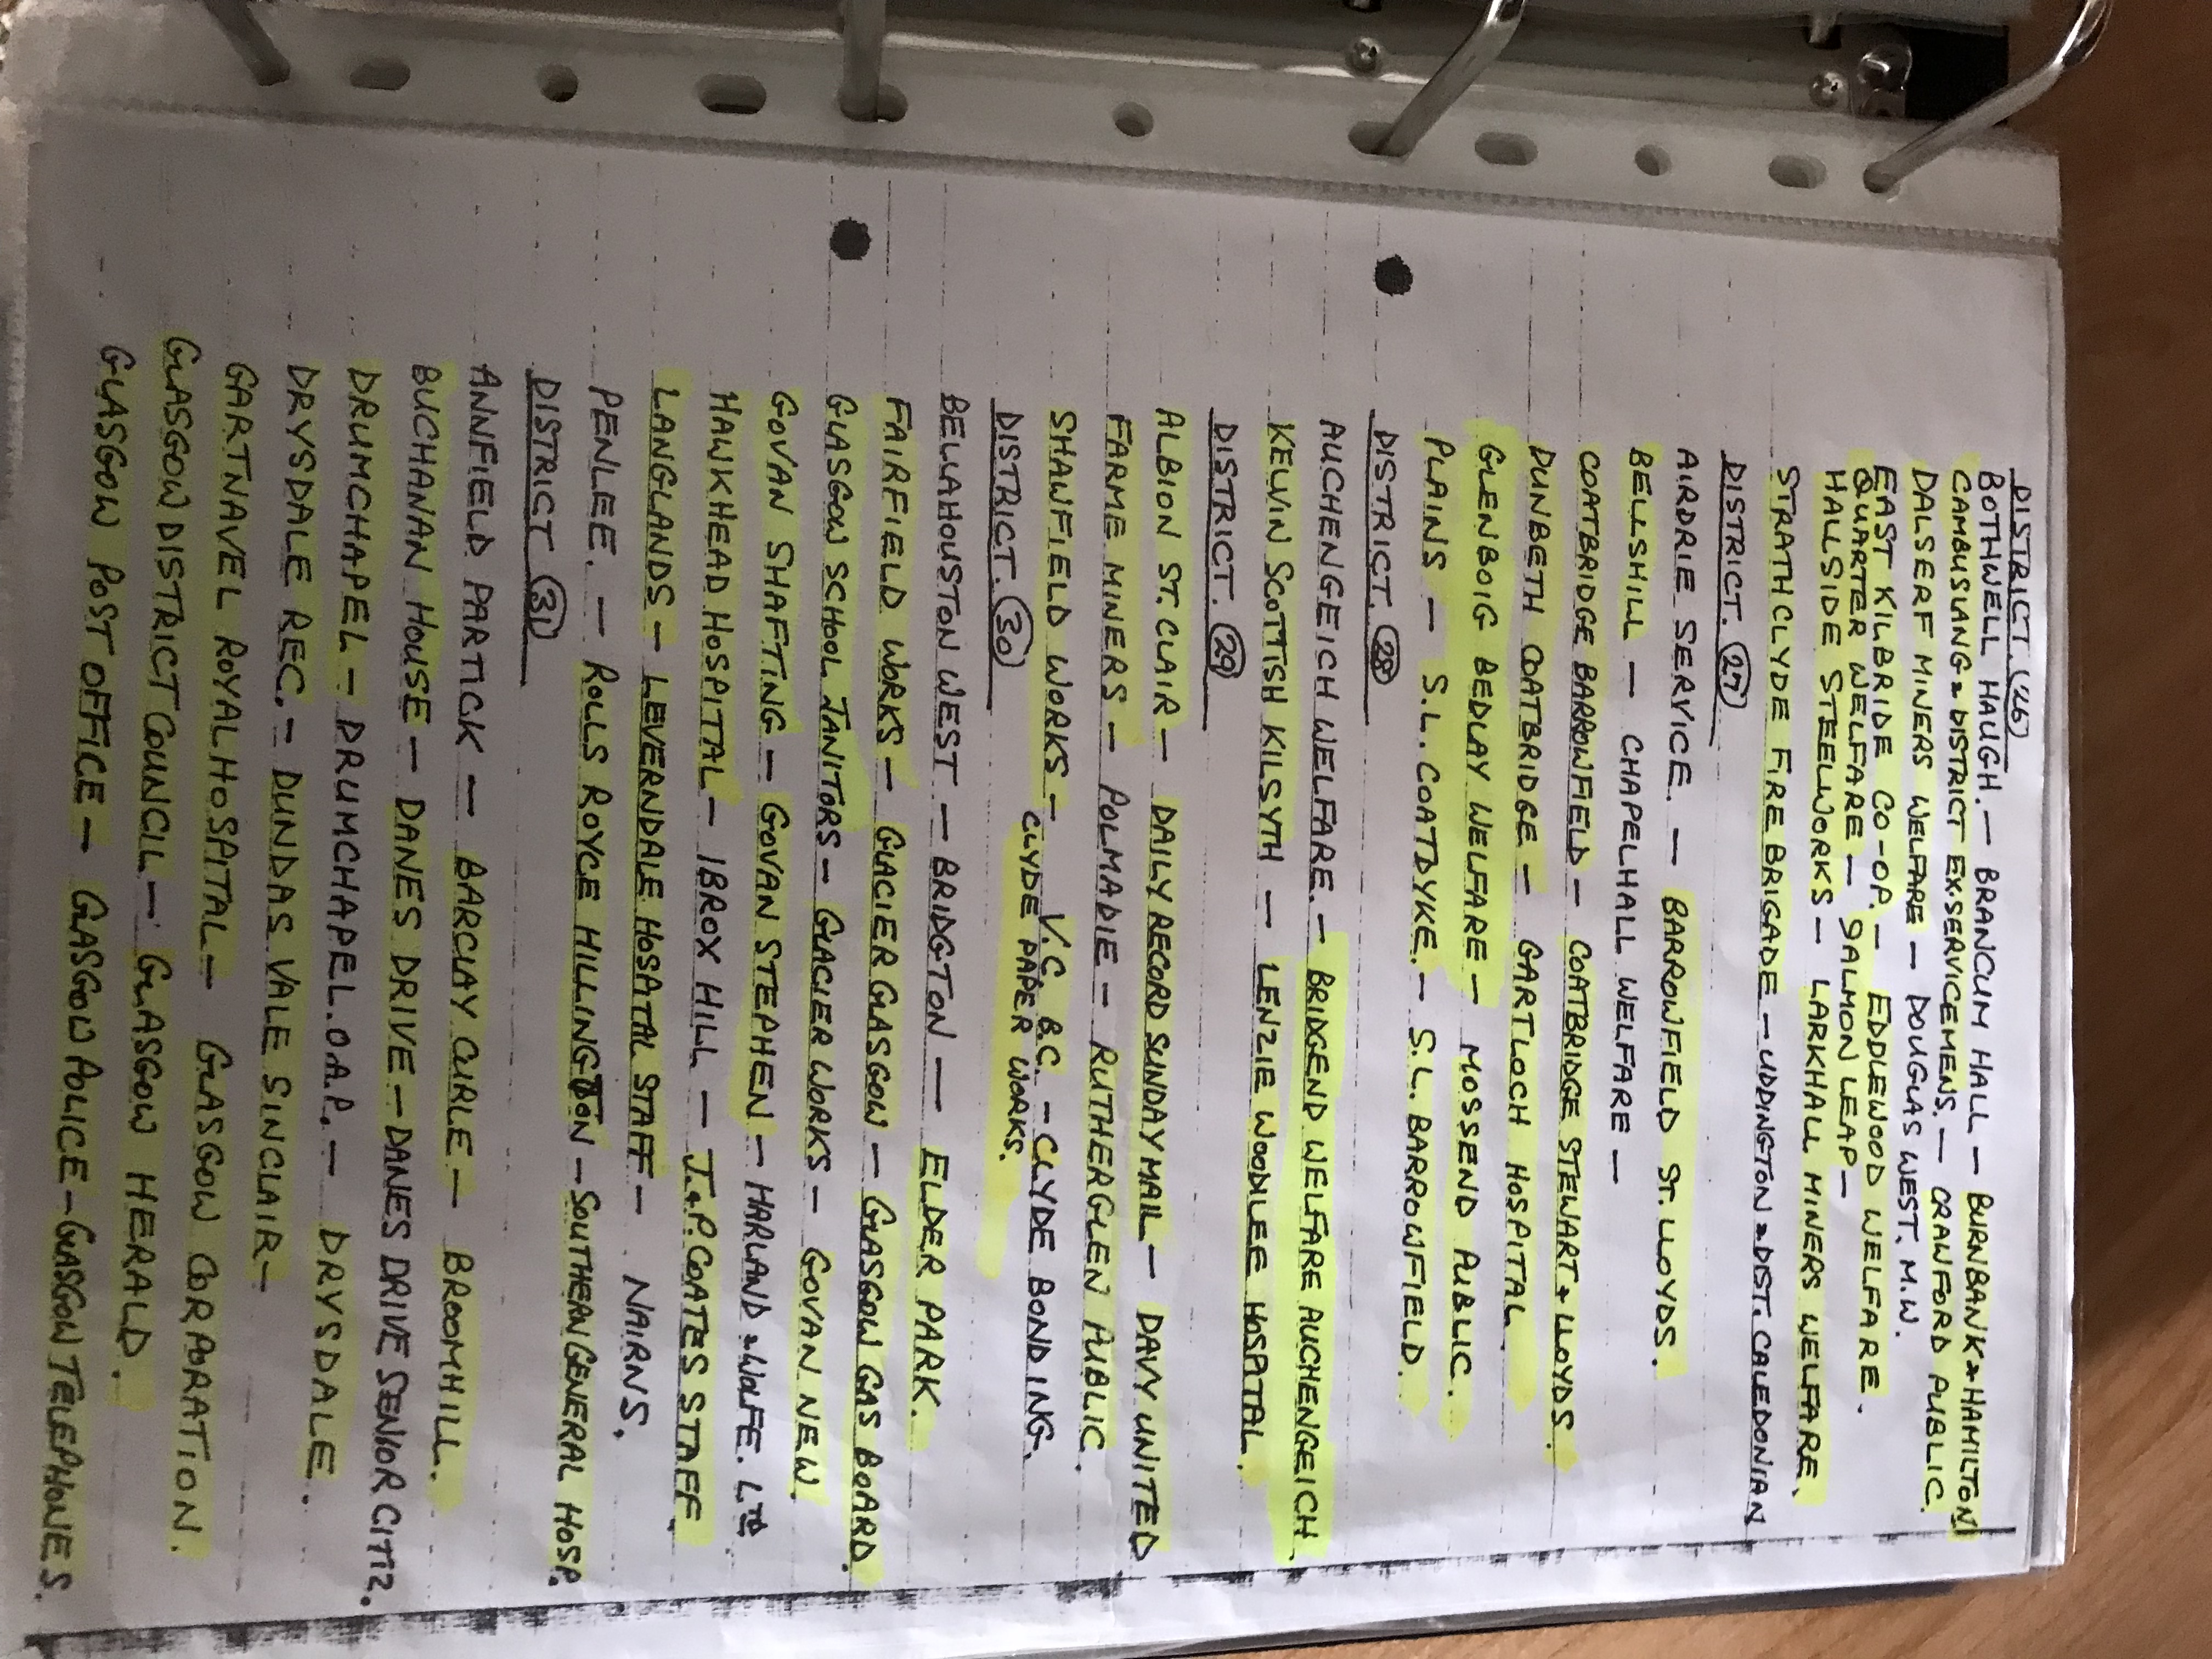 DISTRICT. 26
BOTHWELL HAUGH. — BRANCUM HALL — BURNBANK & HAMILTON
CAMBUSLANG & DISTRICT EX.SERVICEMENS. — CRANFORD PUBLIC.
DALSERF MINERS WELFARE — DOUGLAS WEST. M.W.
EAST KILBRIDE CO-OP. — EDDLEWOOD WELFARE.
QUARTER WELFARE — SALMON LEAP —
HALLSIDE STEELWORKS — LARKHALL MINERS WELFARE.
STRATHCLYDE FIRE BRIGADE — UDDINGTON & DIST. CALEDONIAN
DISTRICT. 27
AIRDRIE SERVICE. — BARROWFIELD ST. LLOYDS.
BELLSHILL — CHAPELHALL WELFARE —
COATBRIDGE BARROWFIELD — COATBRIDGE STEWART & LLOYDS.
DUNBETH COATBRIDGE — GARTLOCH HOSPITAL.
GLENBOIG BEDLAY WELFARE — MOSSEND PUBLIC.
PLAINS — S.L. COATDYKE. — S.L. BARROWFIELD
DISTRICT. 28
AUCHENGEICH WELFARE. — BRIDGEND WELFARE AUCHENGEICH.
KELVIN SCOTTISH KILSYTH — LENZIE WOODILEE HOSPITAL.
DISTRICT. 29
ALBION ST. CLAIR — DAILY RECORD SUNDAY MAIL — DAVY UNITED
FARME MINERS — POLMADIE — RUTHERGLEN PUBLIC.
SHAWFIELD WORKS — V.C. B.C. — CLYDE BONDING.
CLYDE PAPER WORKS.
DISTRICT. 30
BELLAHOUSTON WEST — BRIDGTON — ELDER PARK.
FAIRFIELD WORKS — GLACIER GLASGOW — GLASGOW GAS BOARD.
GLASGOW SCHOOL JANITORS — GLACIER WORKS — GOVAN NEW.
GOVAN SHAFTING — GOVAN STEPHEN — HARLAND & WOLFE. LTD.
HAWKHEAD HOSPITAL — IBROX HILL — J. & P. COATES STAFF.
LANGLANDS — LEVERNDALE HOSPATAL STAFF — NAIRNS.
PENLEE. — ROLLS ROYCE HILLINGTON — SOUTHERN GENERAL HOSP.
DISTRICT 31
ANNFIELD PARTICK — BARCLAY CURLE — BROOMHILL.
BUCHANAN HOUSE — DANES DRIVE — DANES DRIVE SENIOR CITIZ.
DRUMCHAPEL — DRUMCHAPEL. O.A.P. — DRYSDALE.
DRYSDALE REC. — DUNDAS VALE SINCLAIR —
GARTNAVEL ROYAL HOSPITAL — GLASGOW CORPORATION.
GLASGOW DISTRICT COUNCIL — GLASGOW HERALD.
GLASGOW POST OFFICE — GLASGOW POLICE — GLASGOW TELEPHONES.